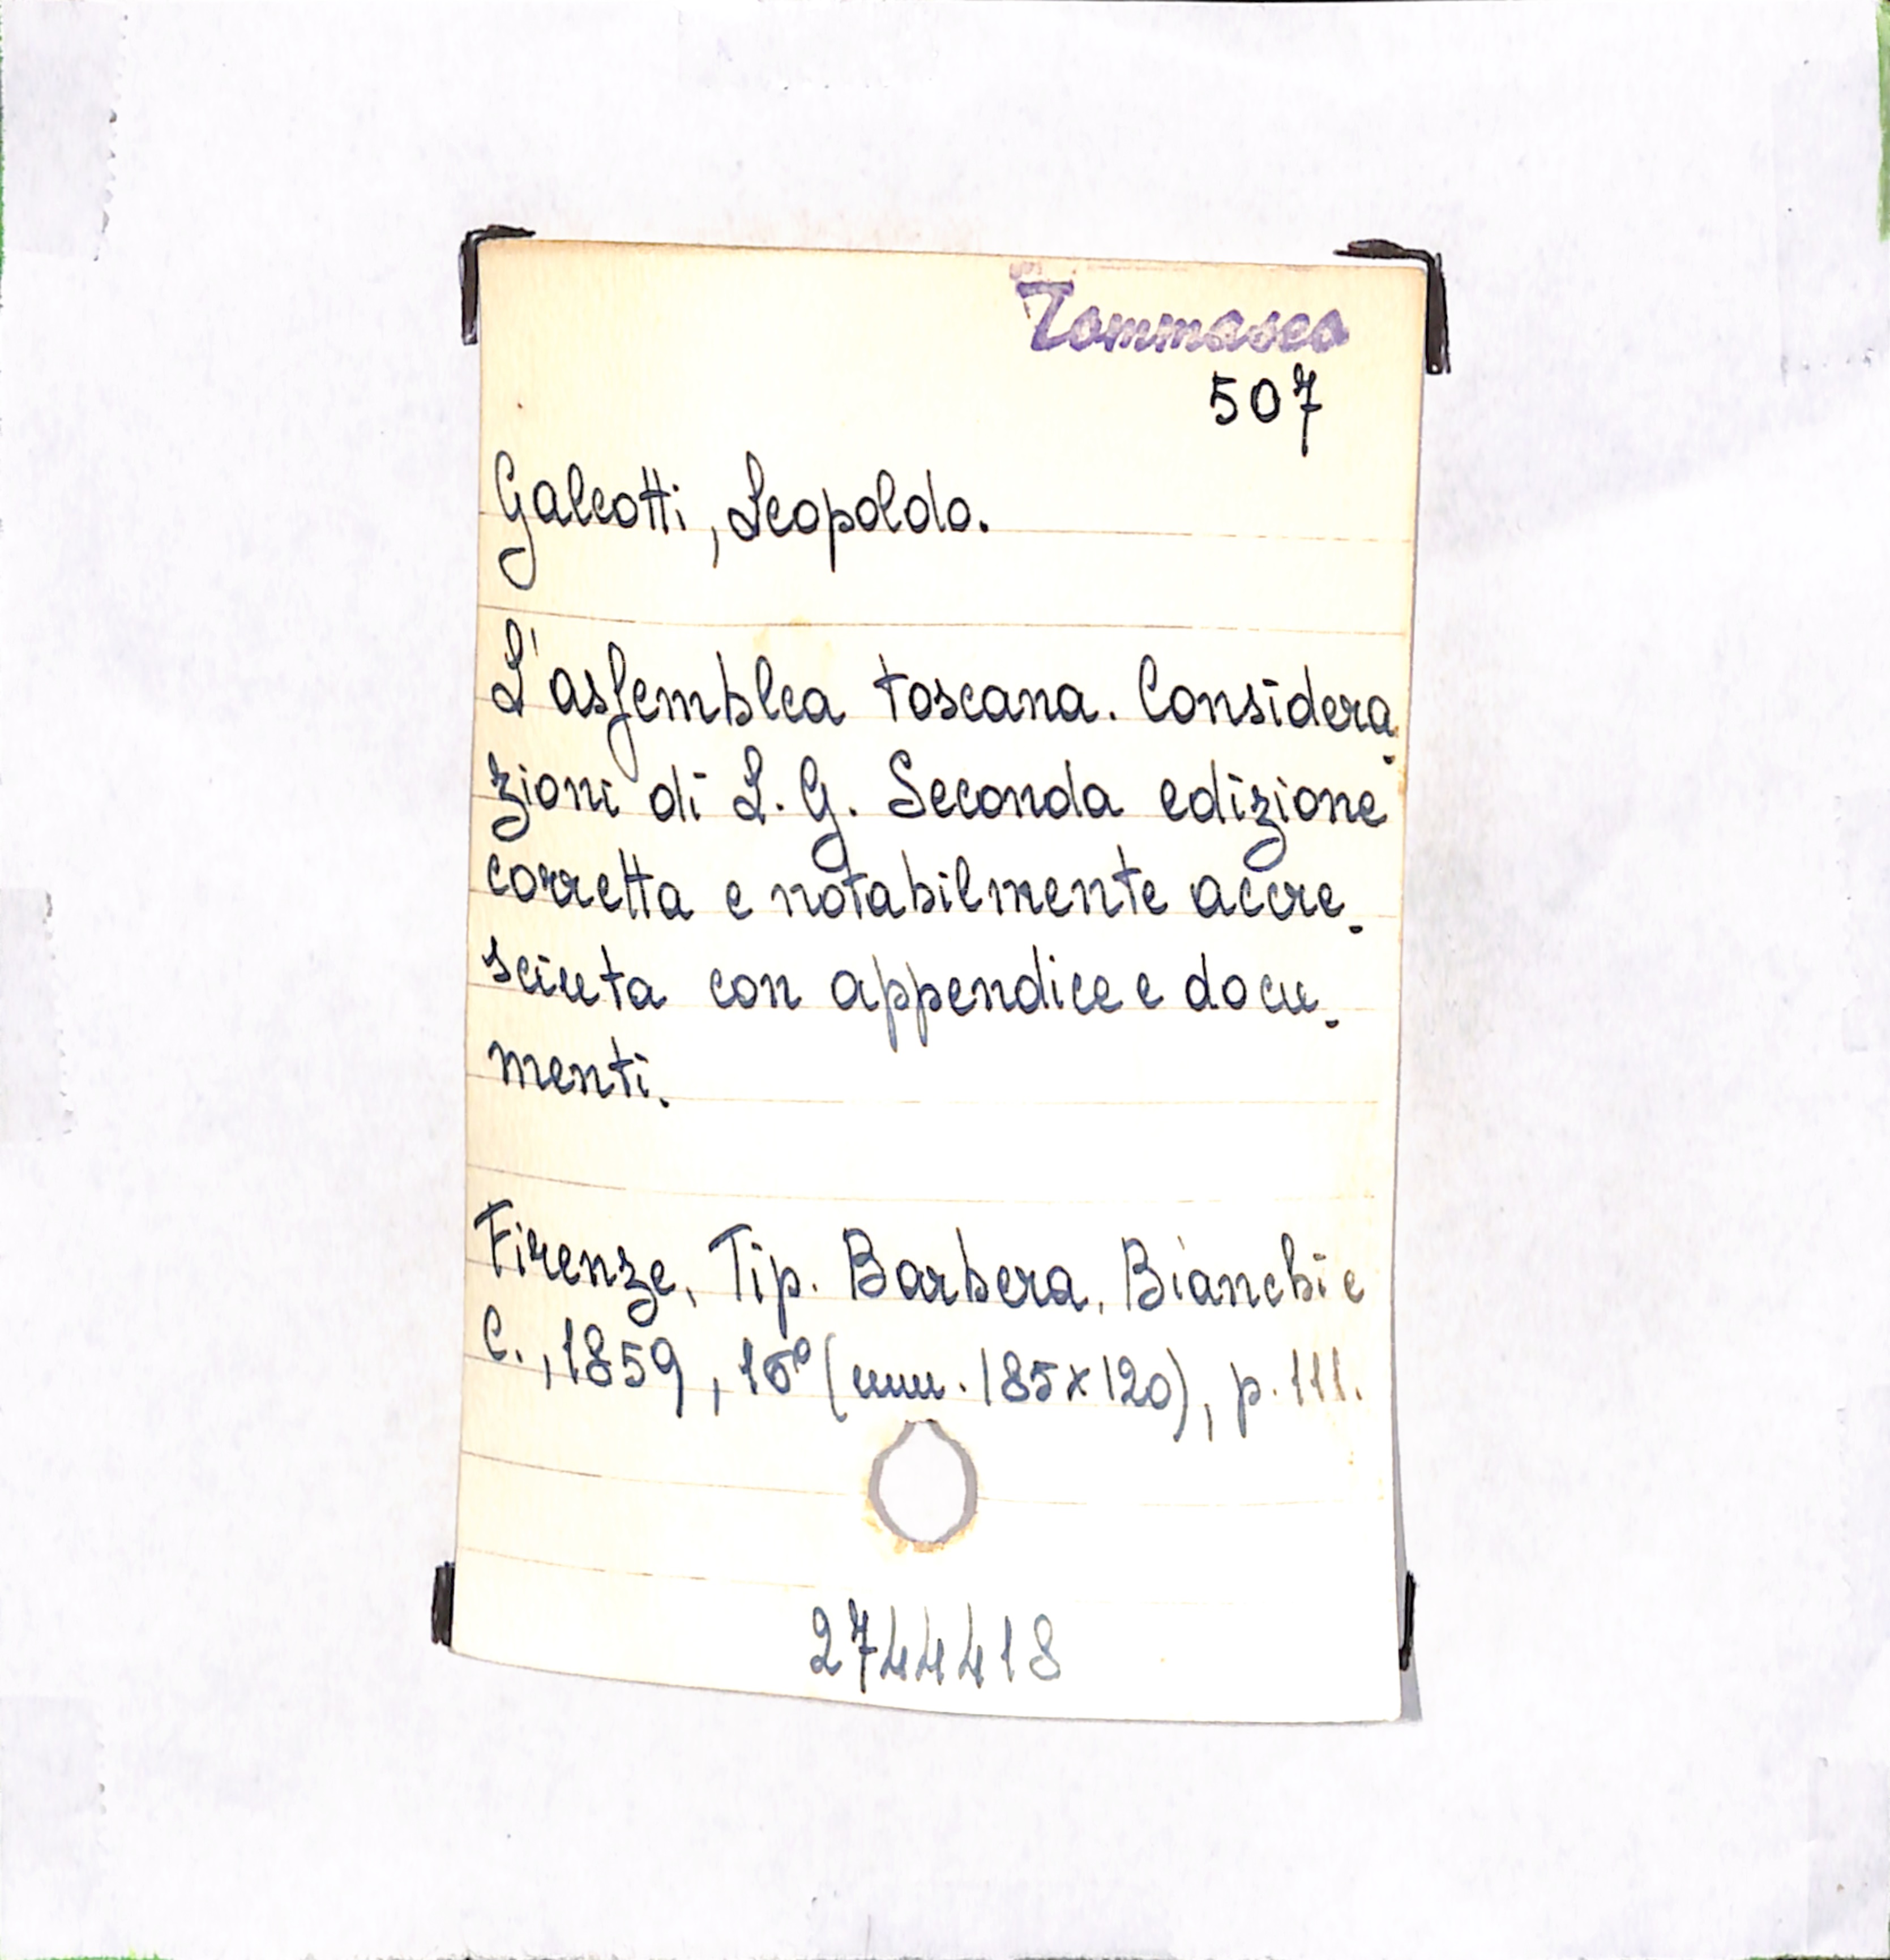 Tommaseo
507
Galeotti, Leopoldo.
L'assemblea toscana. Considera-
zioni di L. G. Seconda edizione
corretta e notabilmente accre-
sciuta con appendice e docu-
menti.
Firenze, Tip. Barbera, Bianchi e
C., 1859, 16º (mm. 185x120), p. 111.
2744418